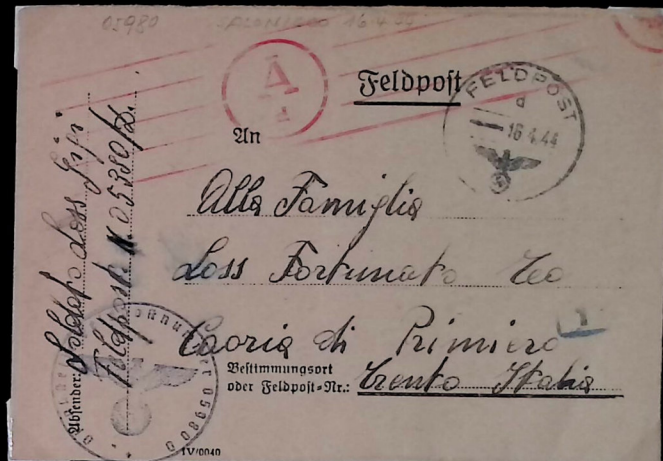 05980 SALONICCO 16.4.44
A
d
Feldpost
FELDPOST
d
16.4.44
An
Alla Famiglia
Loss Fortunato
Caoria di Primiero
Bestimmungsort
oder Feldpost=Nr.: Trento Italia
Absender: Soldato Loss Gigi
Feldpost N. 05980
05980
IV/0040